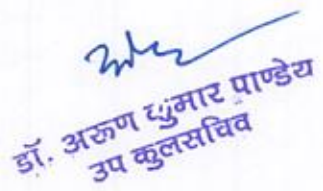 डॉ. अरूण कुमार पाण्डेय
उप कुलसचिव